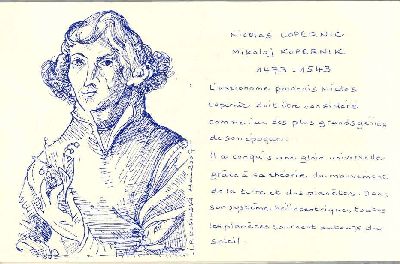 NICOLAS COPERNIC
MIKOŁAJ KOPERNIK
1473 - 1543
L'astronome polonais Nicolas
Copernic doit être considéré
comme l'un des plus grands génies
de son époque.
Il a conquis une gloire universelle
grâce à sa théorie du mouvement
de la terre et des planètes. Dans
son système héliocentrique, toutes
les planètes tournent autour du
soleil.